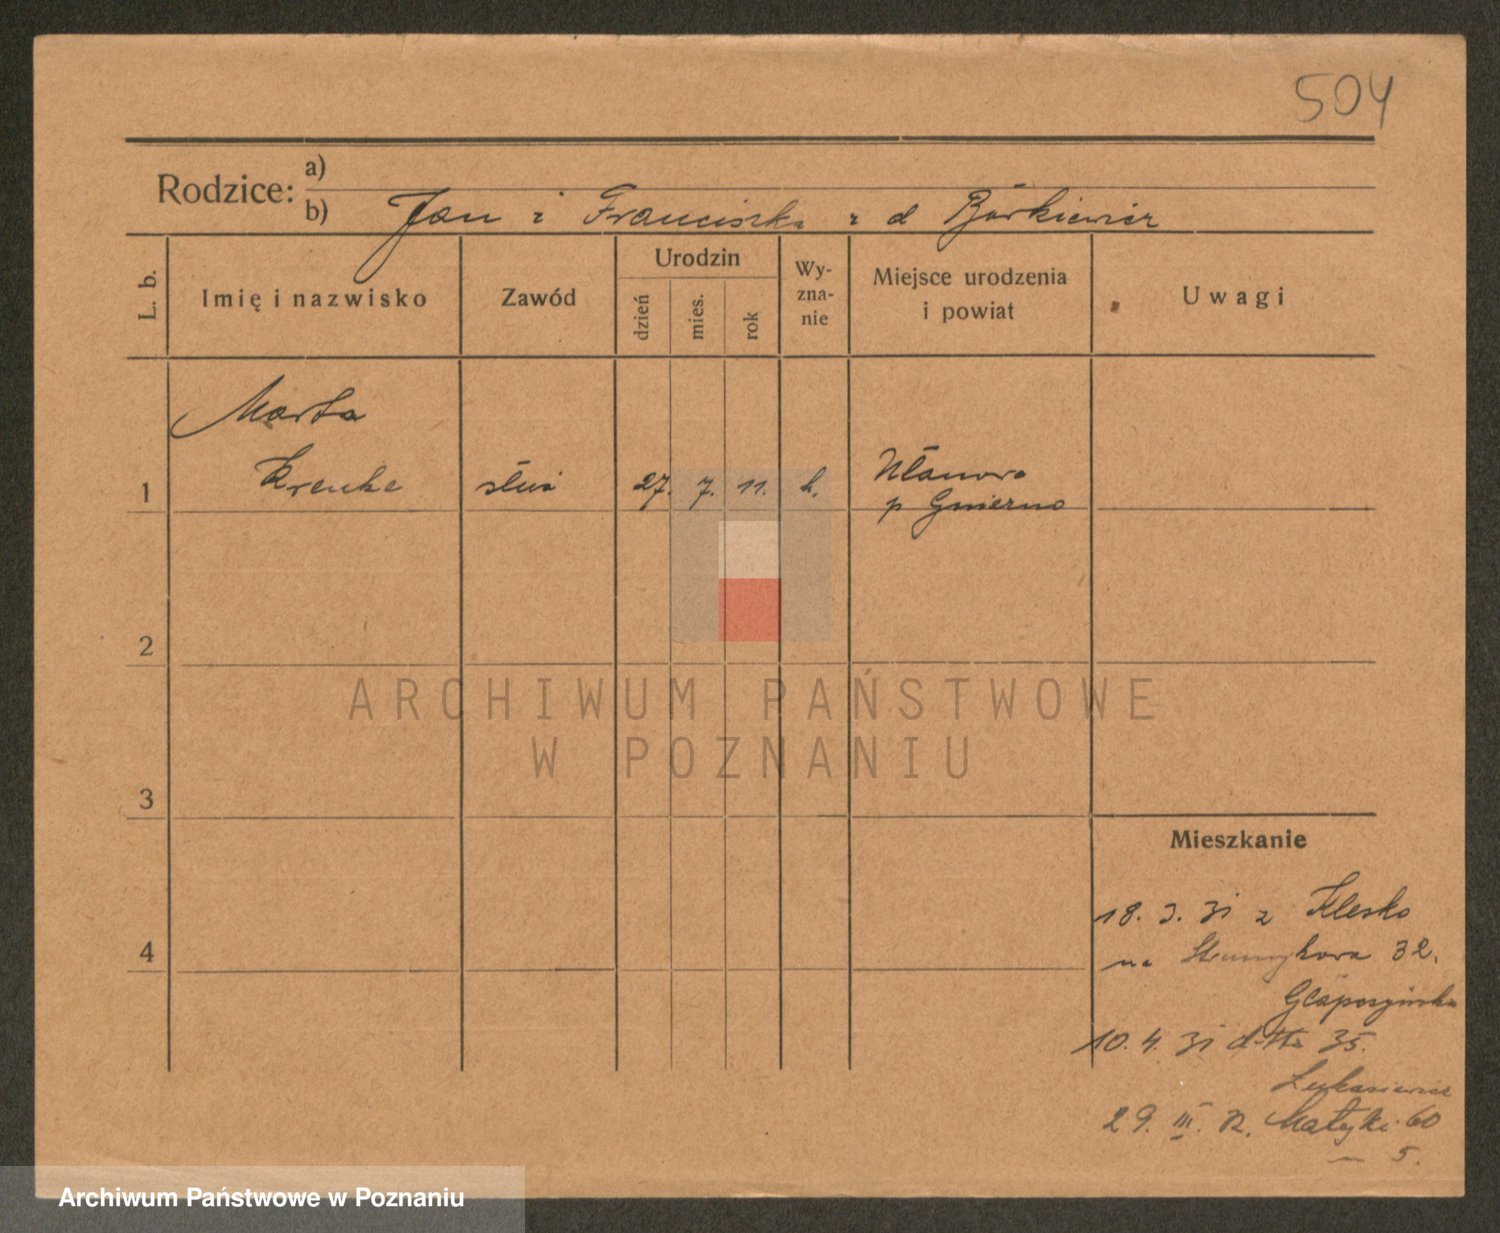 504
Rodzice: a)
b) Jan i Franciszka z d Borkiewicz
L. b.
Imię i nazwisko
Zawód
Urodzin
dzień
mies.
rok
Wy-
zna-
nie
Miejsce urodzenia
i powiat
Uwagi
Marta
1 służ 27. 7. 11. k.
p Gniezno
2
ARCHIWUM PAŃSTWOWE
W POZNANIU
3
Mieszkanie
18. 3. 31 z Klecko
4
na Strumykowa 32.
10. 4. 31 d-tto 35.
Łukasiewicz
29. III. Matejki 60
5.
Archiwum Państwowe w Poznaniu